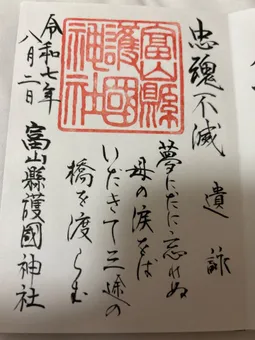 忠魂不滅
遺詠
夢にだに忘れぬ
母の涙をば
いだきて三途の
橋を渡らむ
富山縣護國神社
富山縣
護國
神社
令和七年
八月二日